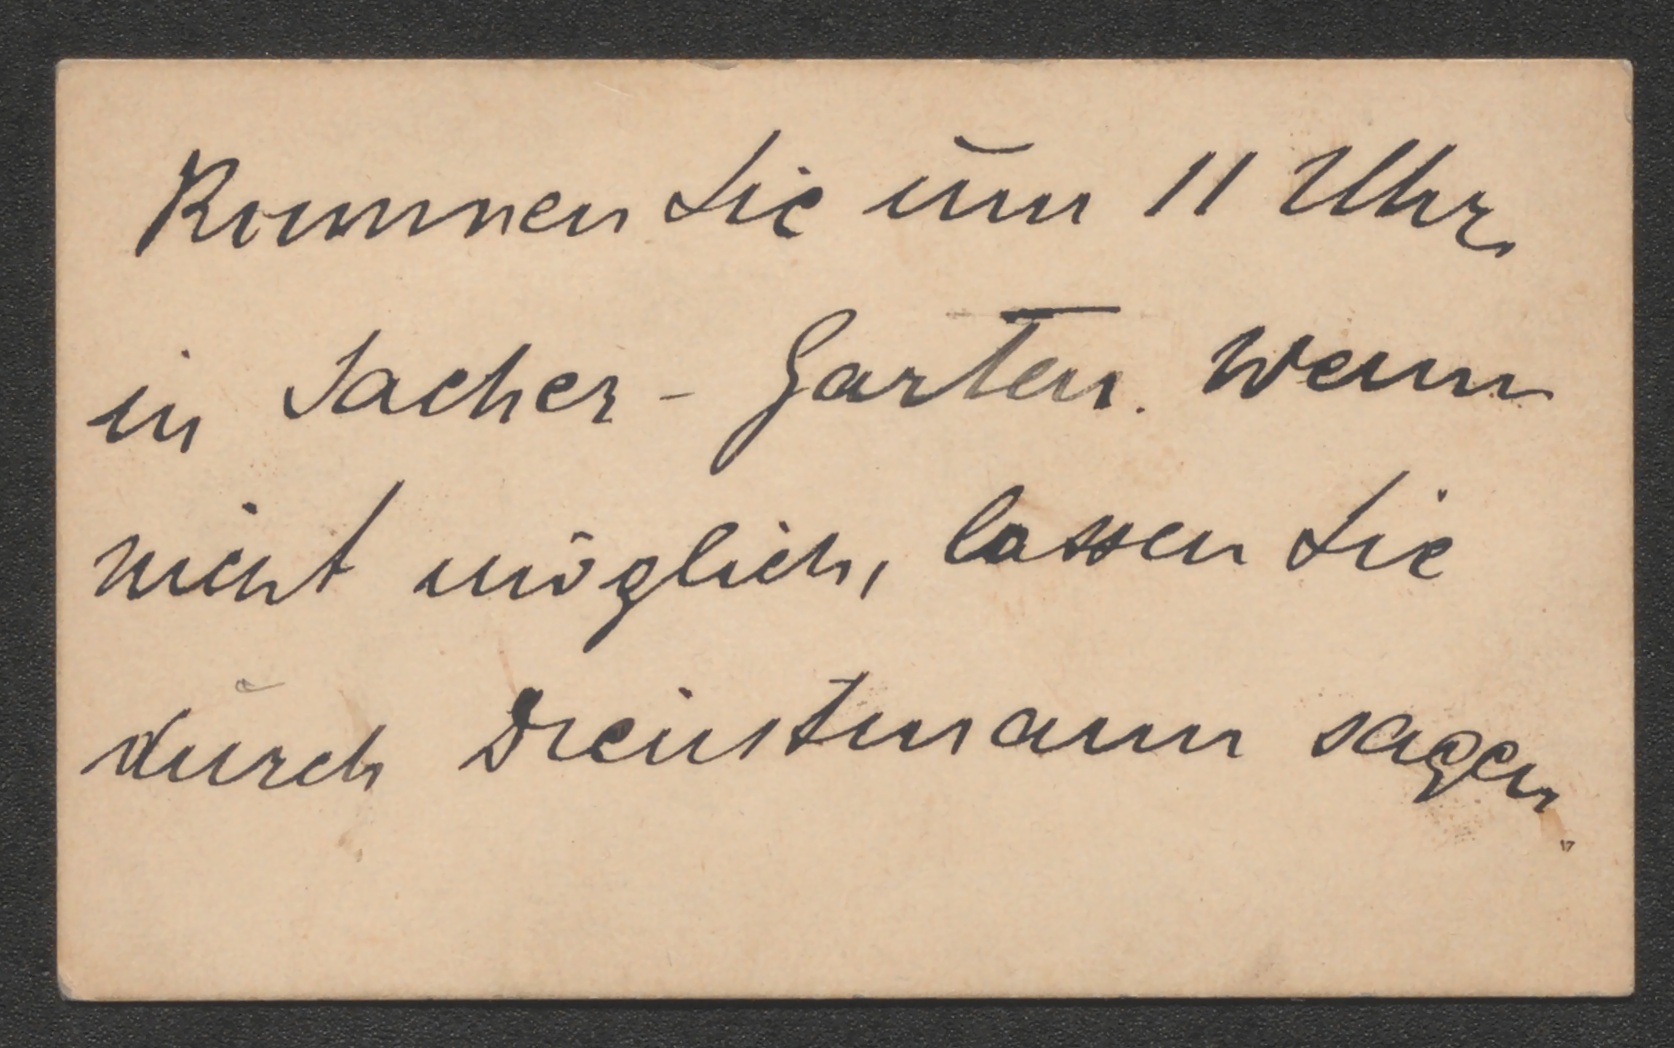 Kommen Sie um 11 Uhr
in Sacher-Garten. Wenn
nicht möglich, lassen Sie
durch Dienstmann sagen.